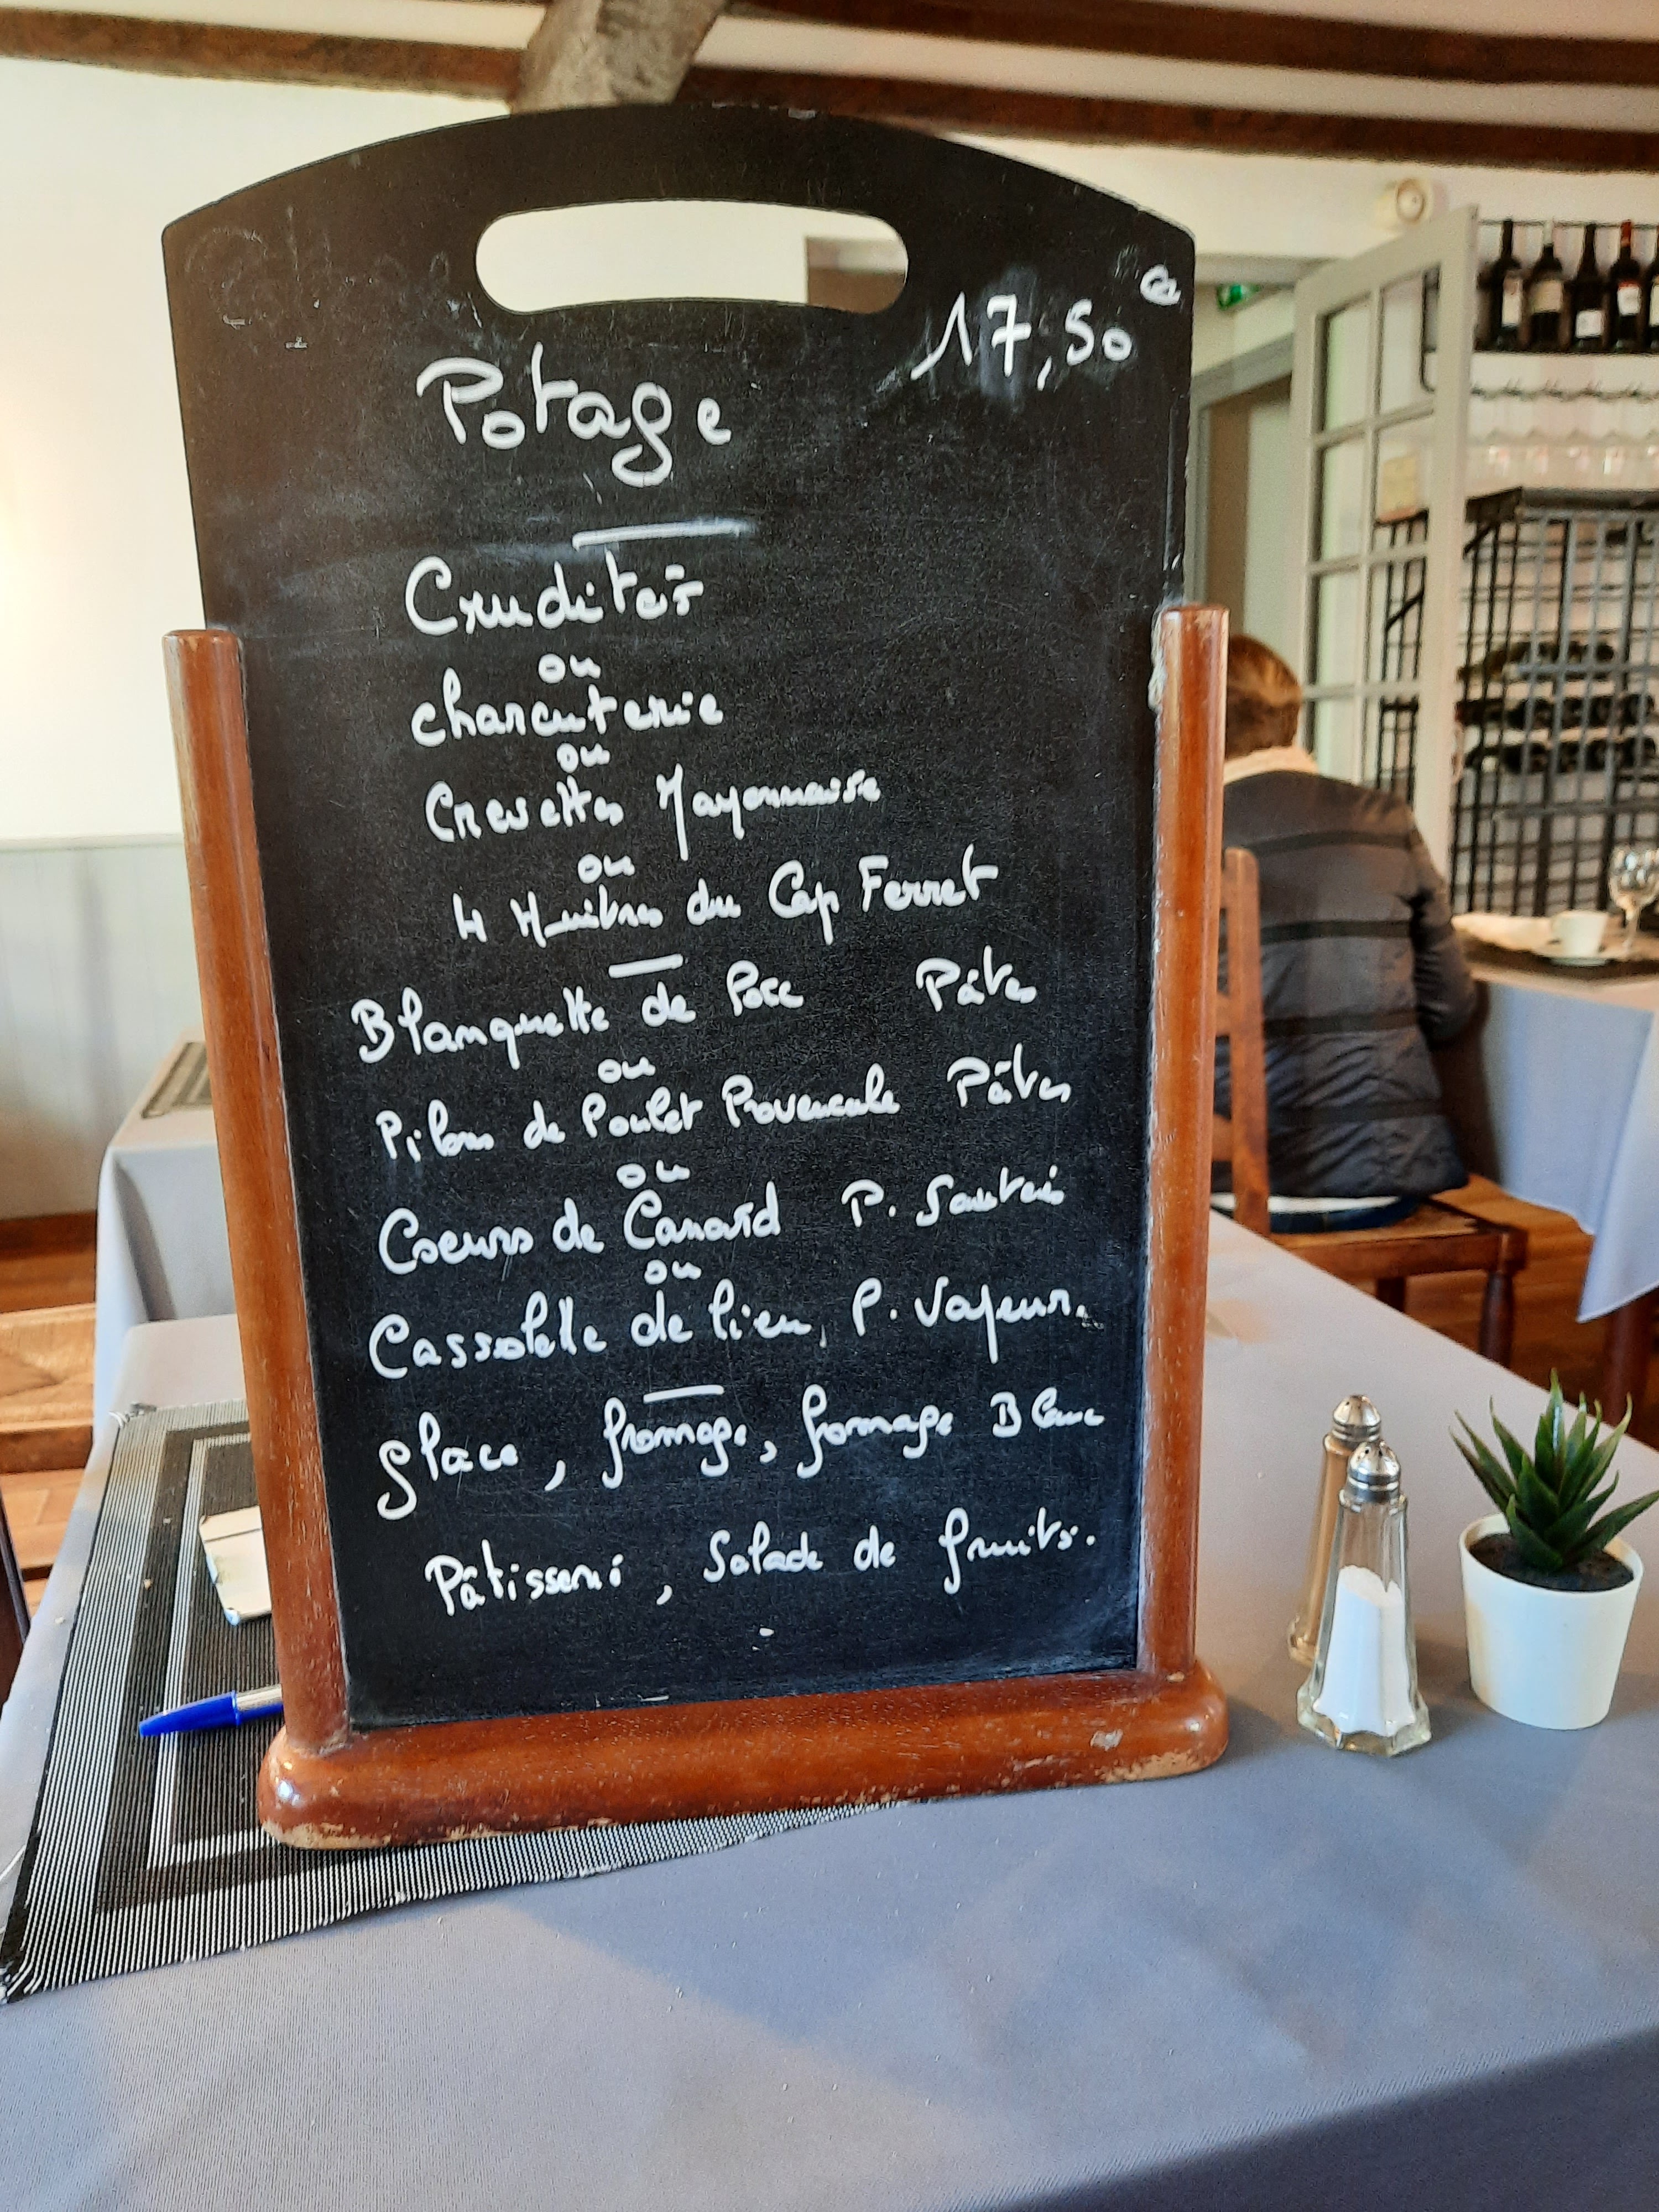 17,50 €
Potage
Crudités
ou
charcuterie
ou
Crevettes Mayonnaise
ou
4 Huitres du Cap Ferret
Blanquette de Porc Pâtes
ou
Pilons de Poulet Provencale Pâtes
ou
Coeurs de Canard P. Sautés
ou
Cassolette de lieu, P. Vapeur.
glace, fromage, fromage Blanc
Pâtisserie, Salade de fruits.